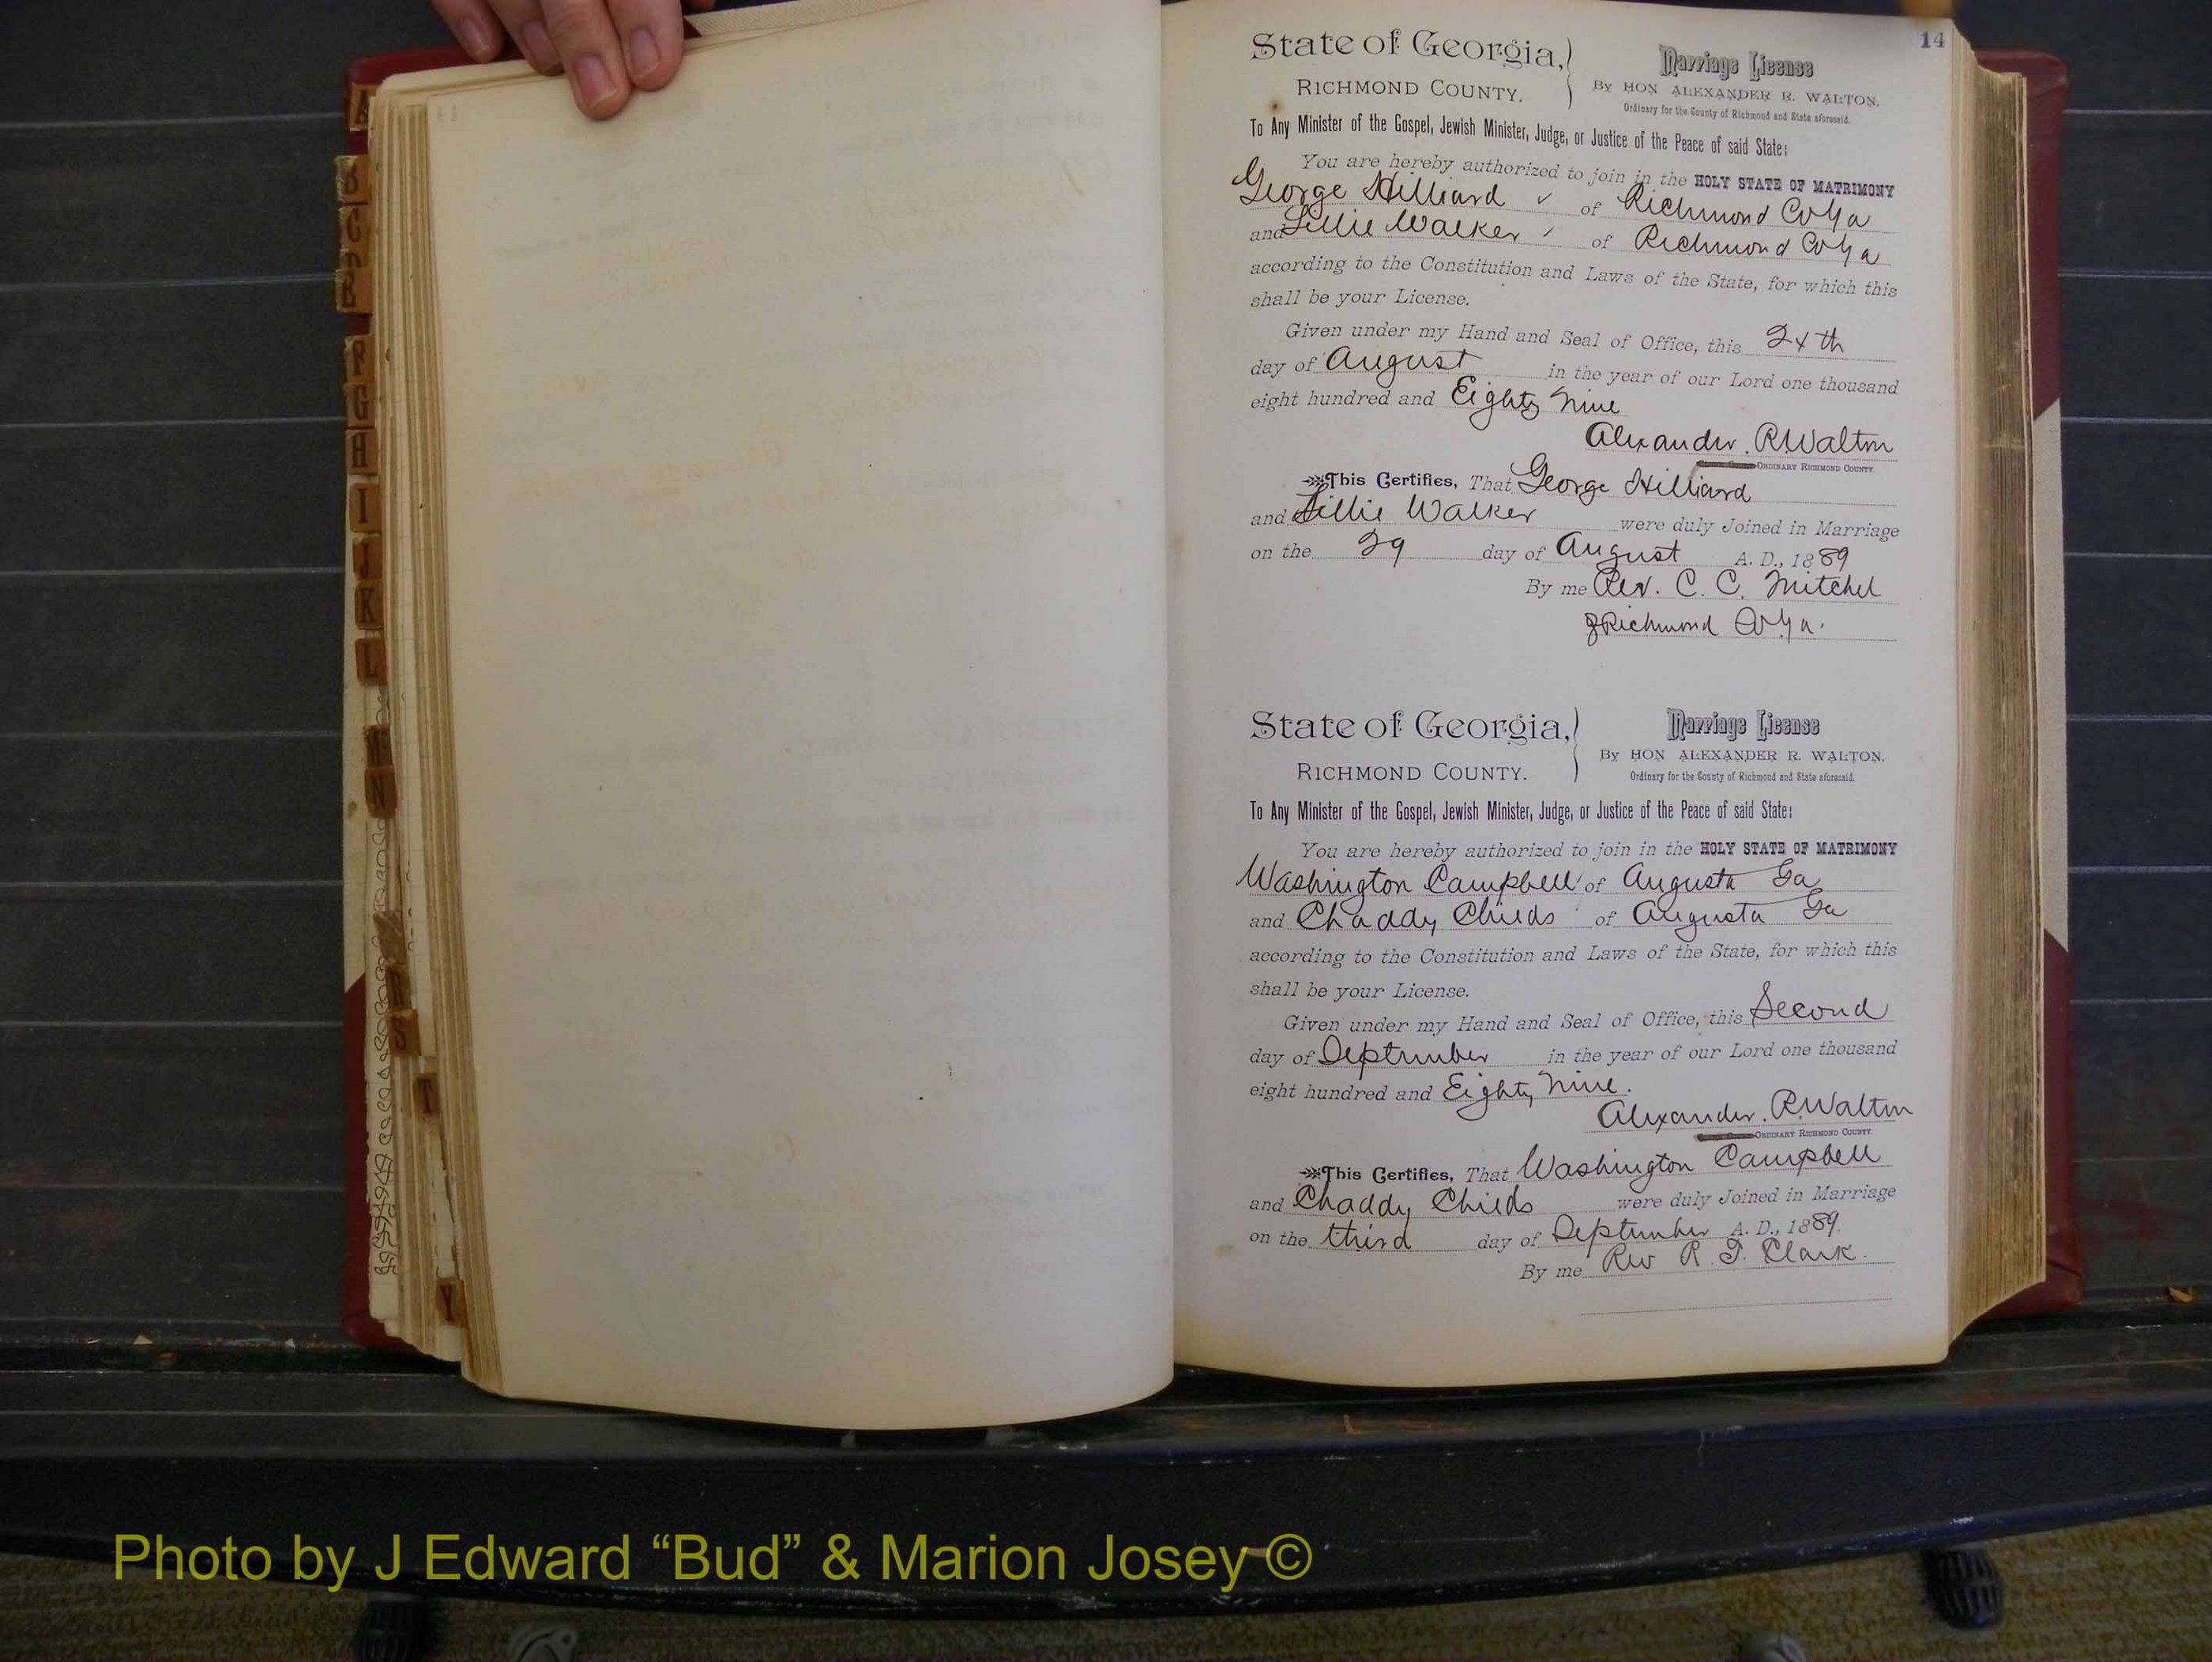 14
State of Georgia,
RICHMOND COUNTY.
Marriage License
By HON ALEXANDER R. WALTON,
Ordinary for the County of Richmond and State aforesaid.
To Any Minister of the Gospel, Jewish Minister, Judge, or Justice of the Peace of said State:
You are hereby authorized to join in the HOLY STATE OF MATRIMONY
George Hilliard of Richmond Co Ga
and Lillie Walker of Richmond Co Ga
according to the Constitution and Laws of the State, for which this
shall be your License.
Given under my Hand and Seal of Office, this 24th
day of August in the year of our Lord one thousand
eight hundred and Eighty Nine
Alexander. R. Walton
ORDINARY RICHMOND COUNTY.
This Certifies, That George Hilliard
and Lillie Walker were duly Joined in Marriage
on the 29 day of August A. D., 1889
By me Rev. C. C. Mitchel
of Richmond Co Ga.
State of Georgia,
RICHMOND COUNTY.
Marriage License
By HON ALEXANDER R. WALTON,
Ordinary for the County of Richmond and State aforesaid.
To Any Minister of the Gospel, Jewish Minister, Judge, or Justice of the Peace of said State:
You are hereby authorized to join in the HOLY STATE OF MATRIMONY
Washington Campbell of Augusta Ga
and Chaddy Childs of Augusta Ga
according to the Constitution and Laws of the State, for which this
shall be your License.
Given under my Hand and Seal of Office, this Second
day of September in the year of our Lord one thousand
eight hundred and Eighty Nine.
Alexander. R. Walton
ORDINARY RICHMOND COUNTY.
This Certifies, That Washington Campbell
and Chaddy Childs were duly Joined in Marriage
on the third day of September A. D., 1889.
By me Rev R. T. Clark.
A
B
C
F
G
H
I
J
K
L
N
S
T
Y
Photo by J Edward “Bud” & Marion Josey ©